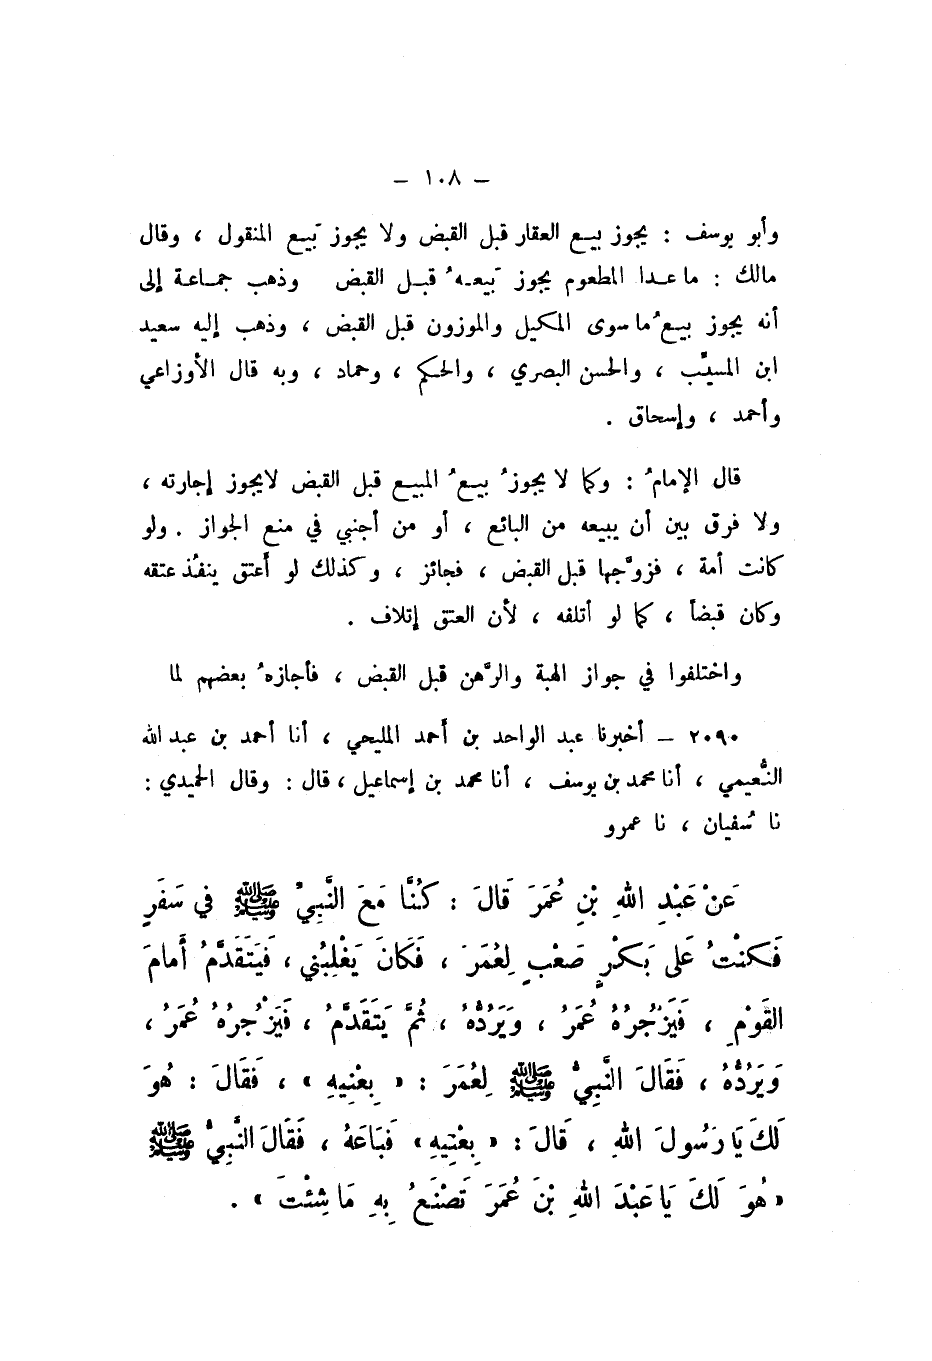 – ١٠٨ –
وأبو يوسف : يجوز بيع العقار قبل القبض ولا يجوز بَيع المنقول ، وقال
مالك : ما عدا المطعوم يجوز بَيعـهُ قبـل القبض وذهب جمـاعة إلى
أنه يجوز بيعُ ما سوى المكيل والموزون قبل القبض ، وذهب إليه سعيد
ابن المسيَّب ، والحسن البصري ، والحكم ، وحماد ، وبه قال الأوزاعي
وأحمد ، وإسحاق .
قال الإمامُ : وكما لا يجوزُ بيعُ المبيع قبل القبض لايجوز إجارته ،
ولا فرق بين أن يبيعه من البائع ، أو من أجنبي في منع الجواز . ولو
كانت أمة ، فزوَّجها قبل القبض ، فجائز ، وكذلك لو أعتق ينفُذ عتقه
وكان قبضاً ، كما لو أتلفه ، لأن العتق إتلاف .
واختلفوا في جواز الهبة والرَّهن قبل القبض ، فأجازهُ بعضهم لما
٢٠٩٠ – أخبرنا عبد الواحد بن أحمد المليحي ، أنا أحمد بن عبد الله
النُّعيمي ، أنا محمد بن يوسف ، أنا محمد بن إسماعيل ، قال : وقال الحميدي :
نا سُفيان ، نا عمرو
عَنْ عَبْدِ اللهِ بْنِ عُمَرَ قَالَ : كُنَّا مَعَ النَّبِيِّ ﷺ في سَفَرٍ
فَكنْتُ عَلى بَكْرٍ صَعْبٍ لِعُمَرَ ، فَكَانَ يَغْلِبُني ، فَيَتَقَدَّمُ أَمامَ
القَوْمِ ، فَيَزْجُرُهُ عُمَرُ ، وَيَرُدُّهُ ، ثُمَّ يَتَقَدَّمُ ، فَيَزْجُرهُ عُمَرُ ،
وَيَرُدُّهُ ، فَقَالَ النَّبِيُّ ﷺ لِعُمَرَ : « بِعْنِيهِ » ، فَقَالَ : هُوَ
لَكَ يَا رَسُولَ اللهِ ، قَالَ : « بِعْنِيهِ » فَبَاعَهُ ، فَقَالَ النَّبِيُّ ﷺ
« هُوَ لَكَ يَا عَبْدَ اللهِ بْنَ عُمَرَ تَصْنَعُ بِهِ مَا شِئْتَ » .